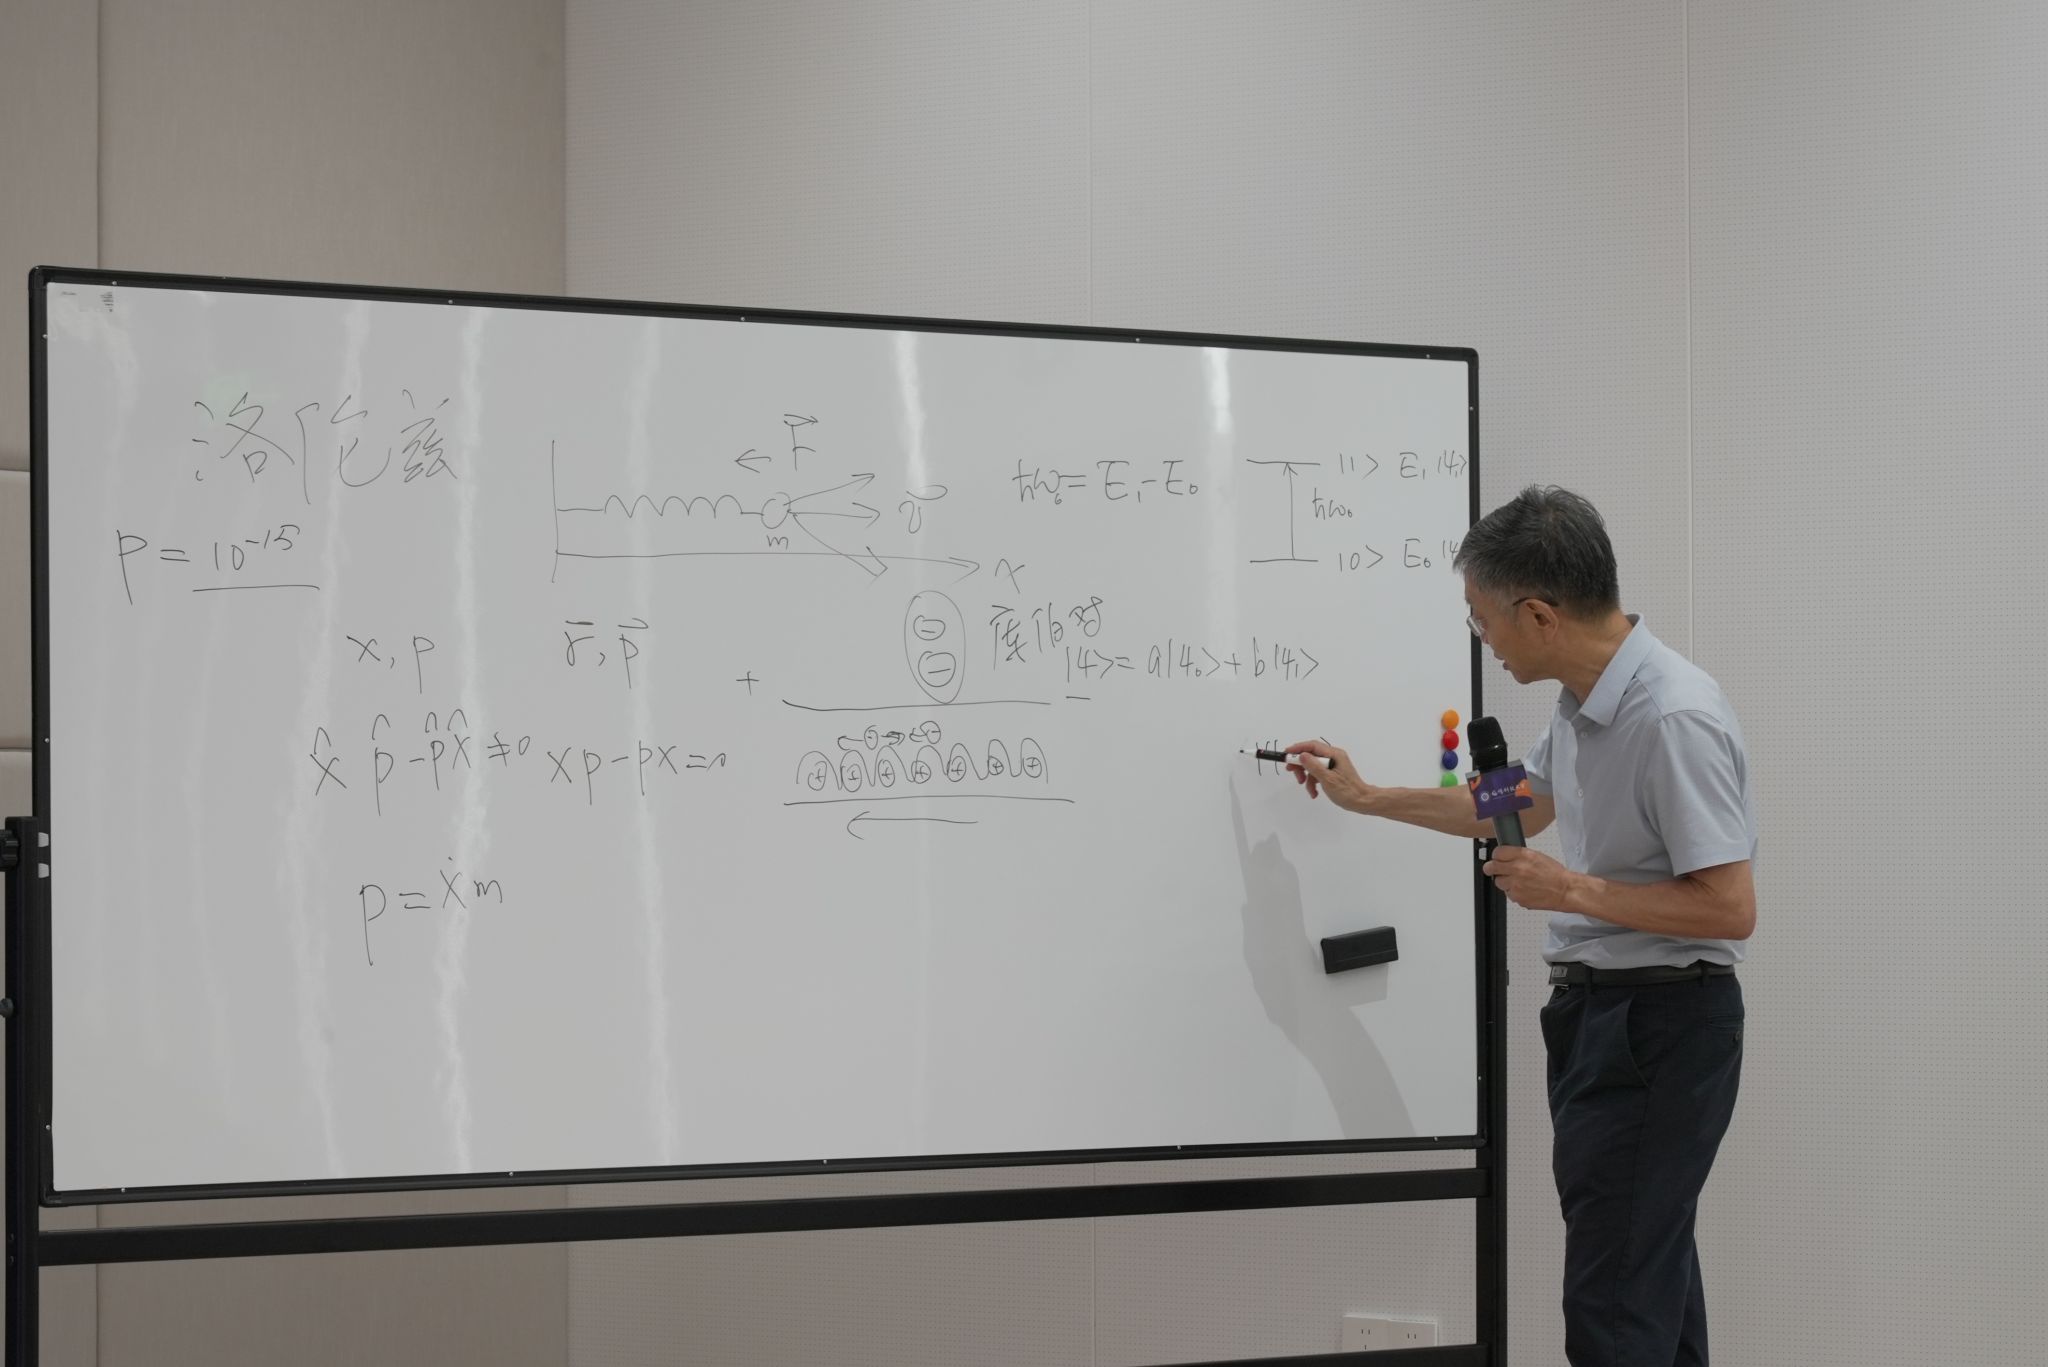 洛伦兹
P = 10⁻¹⁵
F⃗
v⃗
m
x
ħω₀ = E₁ - E₀
|1> E₁ |ψ₁>
ħω₀
|0> E₀ |ψ
x, p
r⃗, p⃗
库伯对
|ψ> = a|ψ₀> + b|ψ₁>
+
−
− −
x̂ p̂ - p̂ x̂ ≠ 0
xp - px = 0
− −
+ + + + + + +
p = ẋm